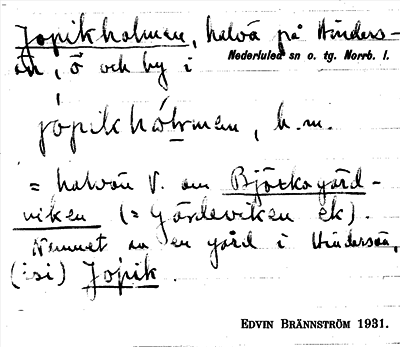 Jopikholmen, halvö på Hinders-
ön, ö och by i Nederluleå sn o. tg. Norrb. l.
jópikhólmen, b.m.
= halvön V. om Björkogård-
viken (= Gårdeviken ek).
Namnet av en gård i Hindersön,
(isi) Jopik.
EDVIN BRÄNNSTRÖM 1931.